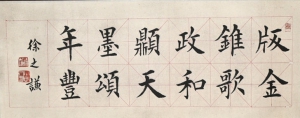 版金
錐歌
政和
天
墨頌
年豐
徐之謙